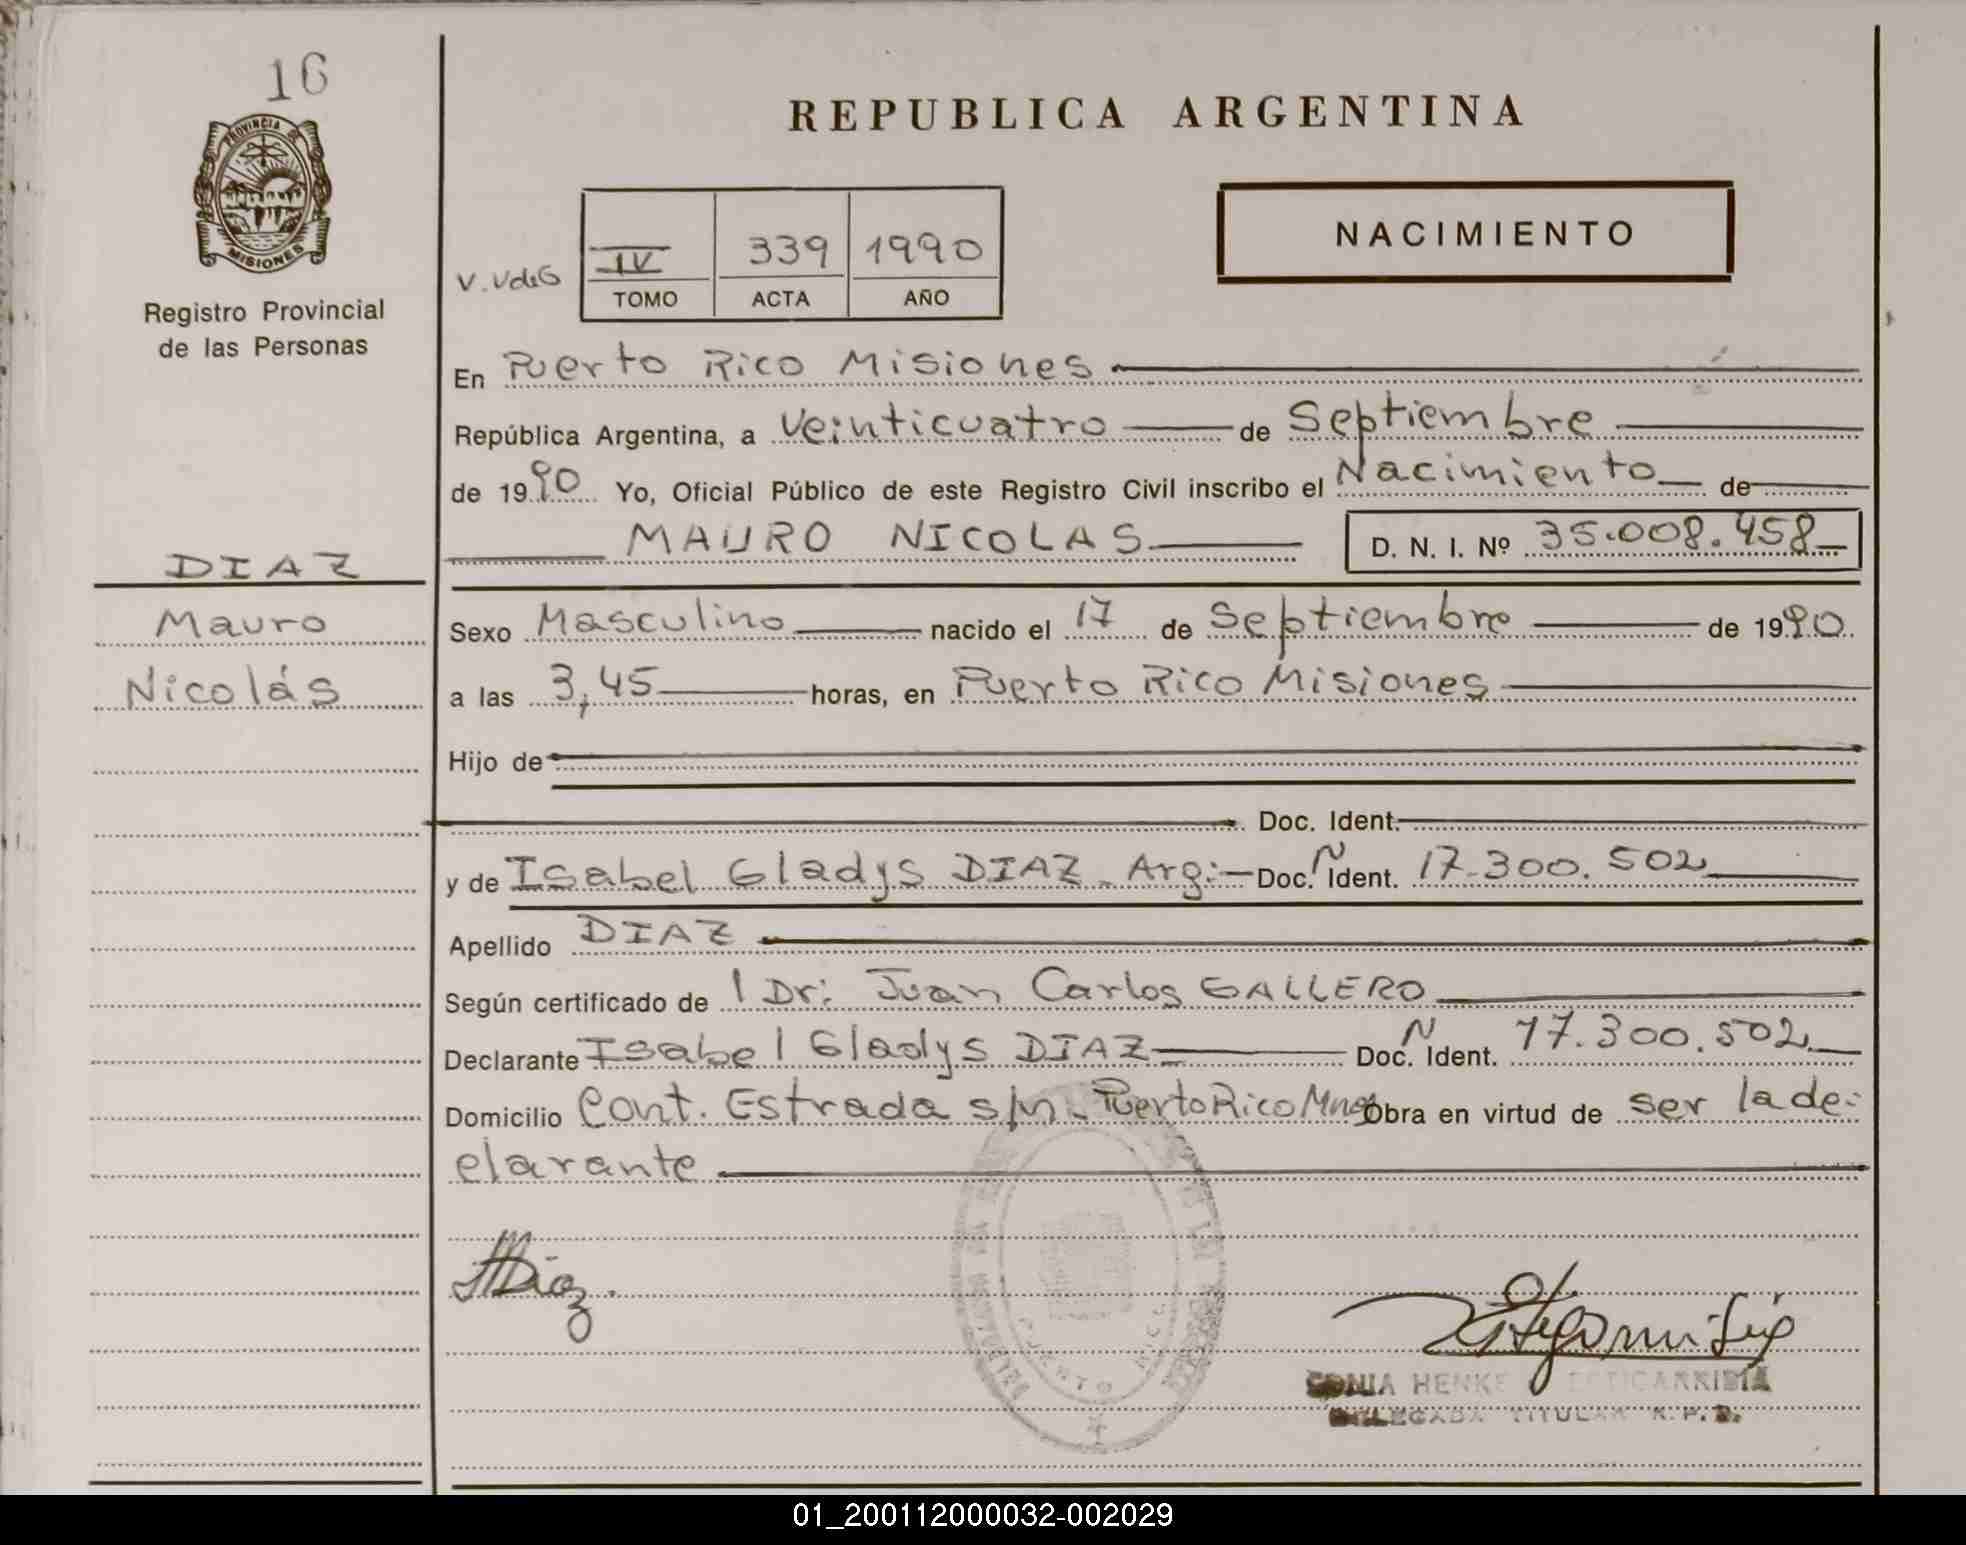 16
PROVINCIA DE
MISIONES
Registro Provincial
de las Personas
REPUBLICA ARGENTINA
NACIMIENTO
V. VdeG
IV 339 1990
TOMO ACTA AÑO
En Puerto Rico Misiones
República Argentina, a Veinticuatro de Septiembre
de 1990 Yo, Oficial Público de este Registro Civil inscribo el Nacimiento de
MAURO NICOLAS D. N. I. Nº 35.008.458
DIAZ
Mauro
Nicolás
Sexo Masculino nacido el 17 de Septiembre de 1990.
a las 3,45 horas, en Puerto Rico Misiones
Hijo de
Doc. Ident.
y de Isabel Gladys DIAZ. Arg: Doc. N Ident. 17.300.502
Apellido DIAZ
Según certificado de l Dr: Juan Carlos GALLERO
Declarante Isabel Gladys DIAZ Doc. N Ident. 17.300.502
Domicilio Cont. Estrada s/n. Puerto Rico Mnes Obra en virtud de ser la de-
clarante
Diaz.
PUERTO RICO
SONIA HENKE
DELEGADA TITULAR R. P. P.
01_200112000032-002029